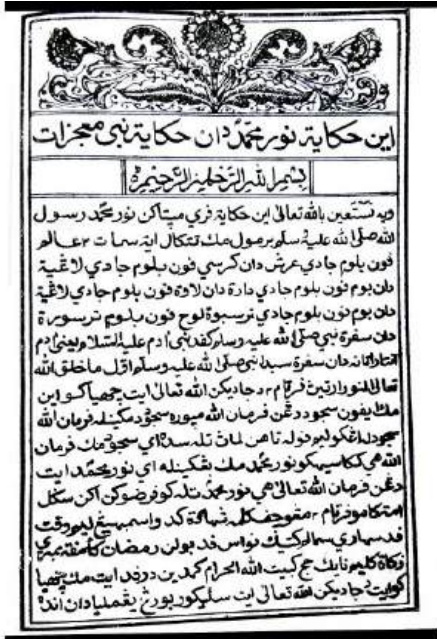 اين حكاية نور محمد دان حكاية نبي معجزات
بسم الله الرحمن الرحيم
وبه نستعين بالله تعالى اين حكاية فري مپتاكن نور محمد رسول
الله صلى الله عليه وسلم برمول مك تتكال اية سمات ٢ عالم
فون بلوم جادي عرش دان كرسي فون بلوم جادي لاڠية
دان بوم فون بلوم جادي دارة دان لاوة فون بلوم جادي لاڠية
دان بوم فون بلوم جادي ترسبوة لوح فون بلوم ترسورة
دان سفرة نبي صلى الله عليه وسلم كفد نبي أدم عليه السلام يعني أدم
دان سفرة سبدا نبي صلى الله عليه وسلم اول ما خلق الله
تعالى النور ارتين فرتام ٢ دجاديكن الله تعالى ايت چهيا كو اين
مك ايفون سجود دڠن فرمان الله سجود مكينله فرمان الله
سجود له اڠكو ليم فوله تاهن لمان تله سده اي سجود مك فرمان
الله هي ككاسيهكو نور محمد مك بڠكيتله اي نور محمد ايت
دڠن فرمان الله تعالى هي نور محمد تله كو فرضوكن اكن سكل
امتكامو فرتام ٢ مڠوچف كلمه شهادة كدوا سمبهيڠ ليم وقت
فد سهاري سمالم كتيڬ فواس فد بولن رمضان كأمفة ممبري
زكاة كليم نايك حج كبيت الله الحرام كمدين در فد ايت مك چهيا
كو ايت دجاديكن الله تعالى ايت سايكور بورڠ يڠ مليا دان اندہ